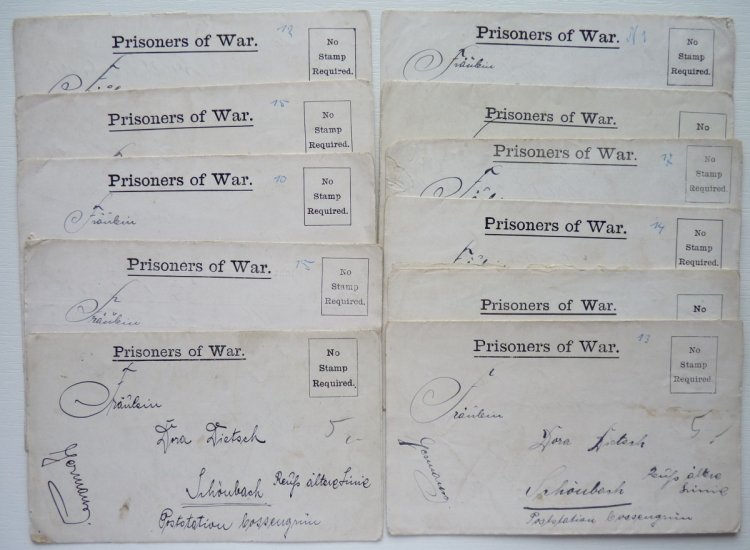 Prisoners of War.
12
No
Stamp
Required.
Prisoners of War.
15
No
Stamp
Required.
Prisoners of War.
10
No
Stamp
Required.
Fräulein
Prisoners of War.
15
No
Stamp
Required.
Fräulein
Prisoners of War.
No
Stamp
Required.
Fräulein
Dora Dietsch
5,-
Schönbach Reuß ältere Linie
Poststation Cossengrün
Germany.
Prisoners of War.
No
Stamp
Required.
Fräulein
Prisoners of War.
No
Prisoners of War.
12
No
Stamp
Required.
Prisoners of War.
14
No
Stamp
Required.
Prisoners of War.
No
Prisoners of War.
13
No
Stamp
Required.
Fräulein
Dora Dietsch
5,-
Schönbach
Reuß ältere
Linie
Poststation Cossengrün
Germany.